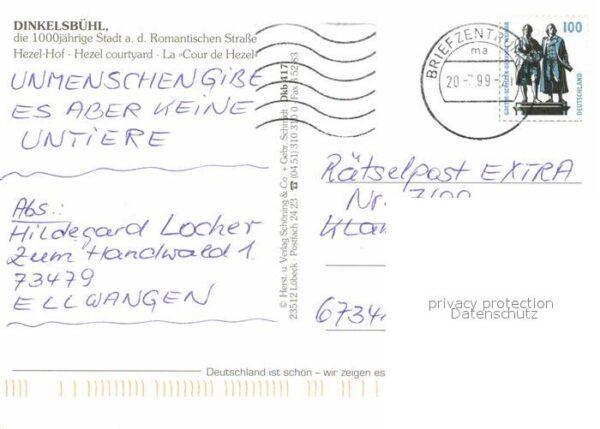 DINKELSBÜHL,
die 1000jährige Stadt a. d. Romantischen Straße
Hezel-Hof · Hezel courtyard · La »Cour de Hezel«
UNMENSCHEN GIBT
ES ABER KEINE
UNTIERE
Abs.:
Hildegard Locher
Zum Handwald 1
73479
ELLWANGEN
© Herst. u. Verlag Schöning & Co. + Gebr. Schmidt Dkb 417
23512 Lübeck · Postfach 24 23 ☎ (04 51) 310 310 Fax
BRIEFZENTRUM
ma
20
99
100
GOETHE-SCHILLER-DENKMAL
DEUTSCHLAND
Rätselpost EXTRA
Nr.
6734
privacy protection
Datenschutz
Deutschland ist schön – wir zeigen es